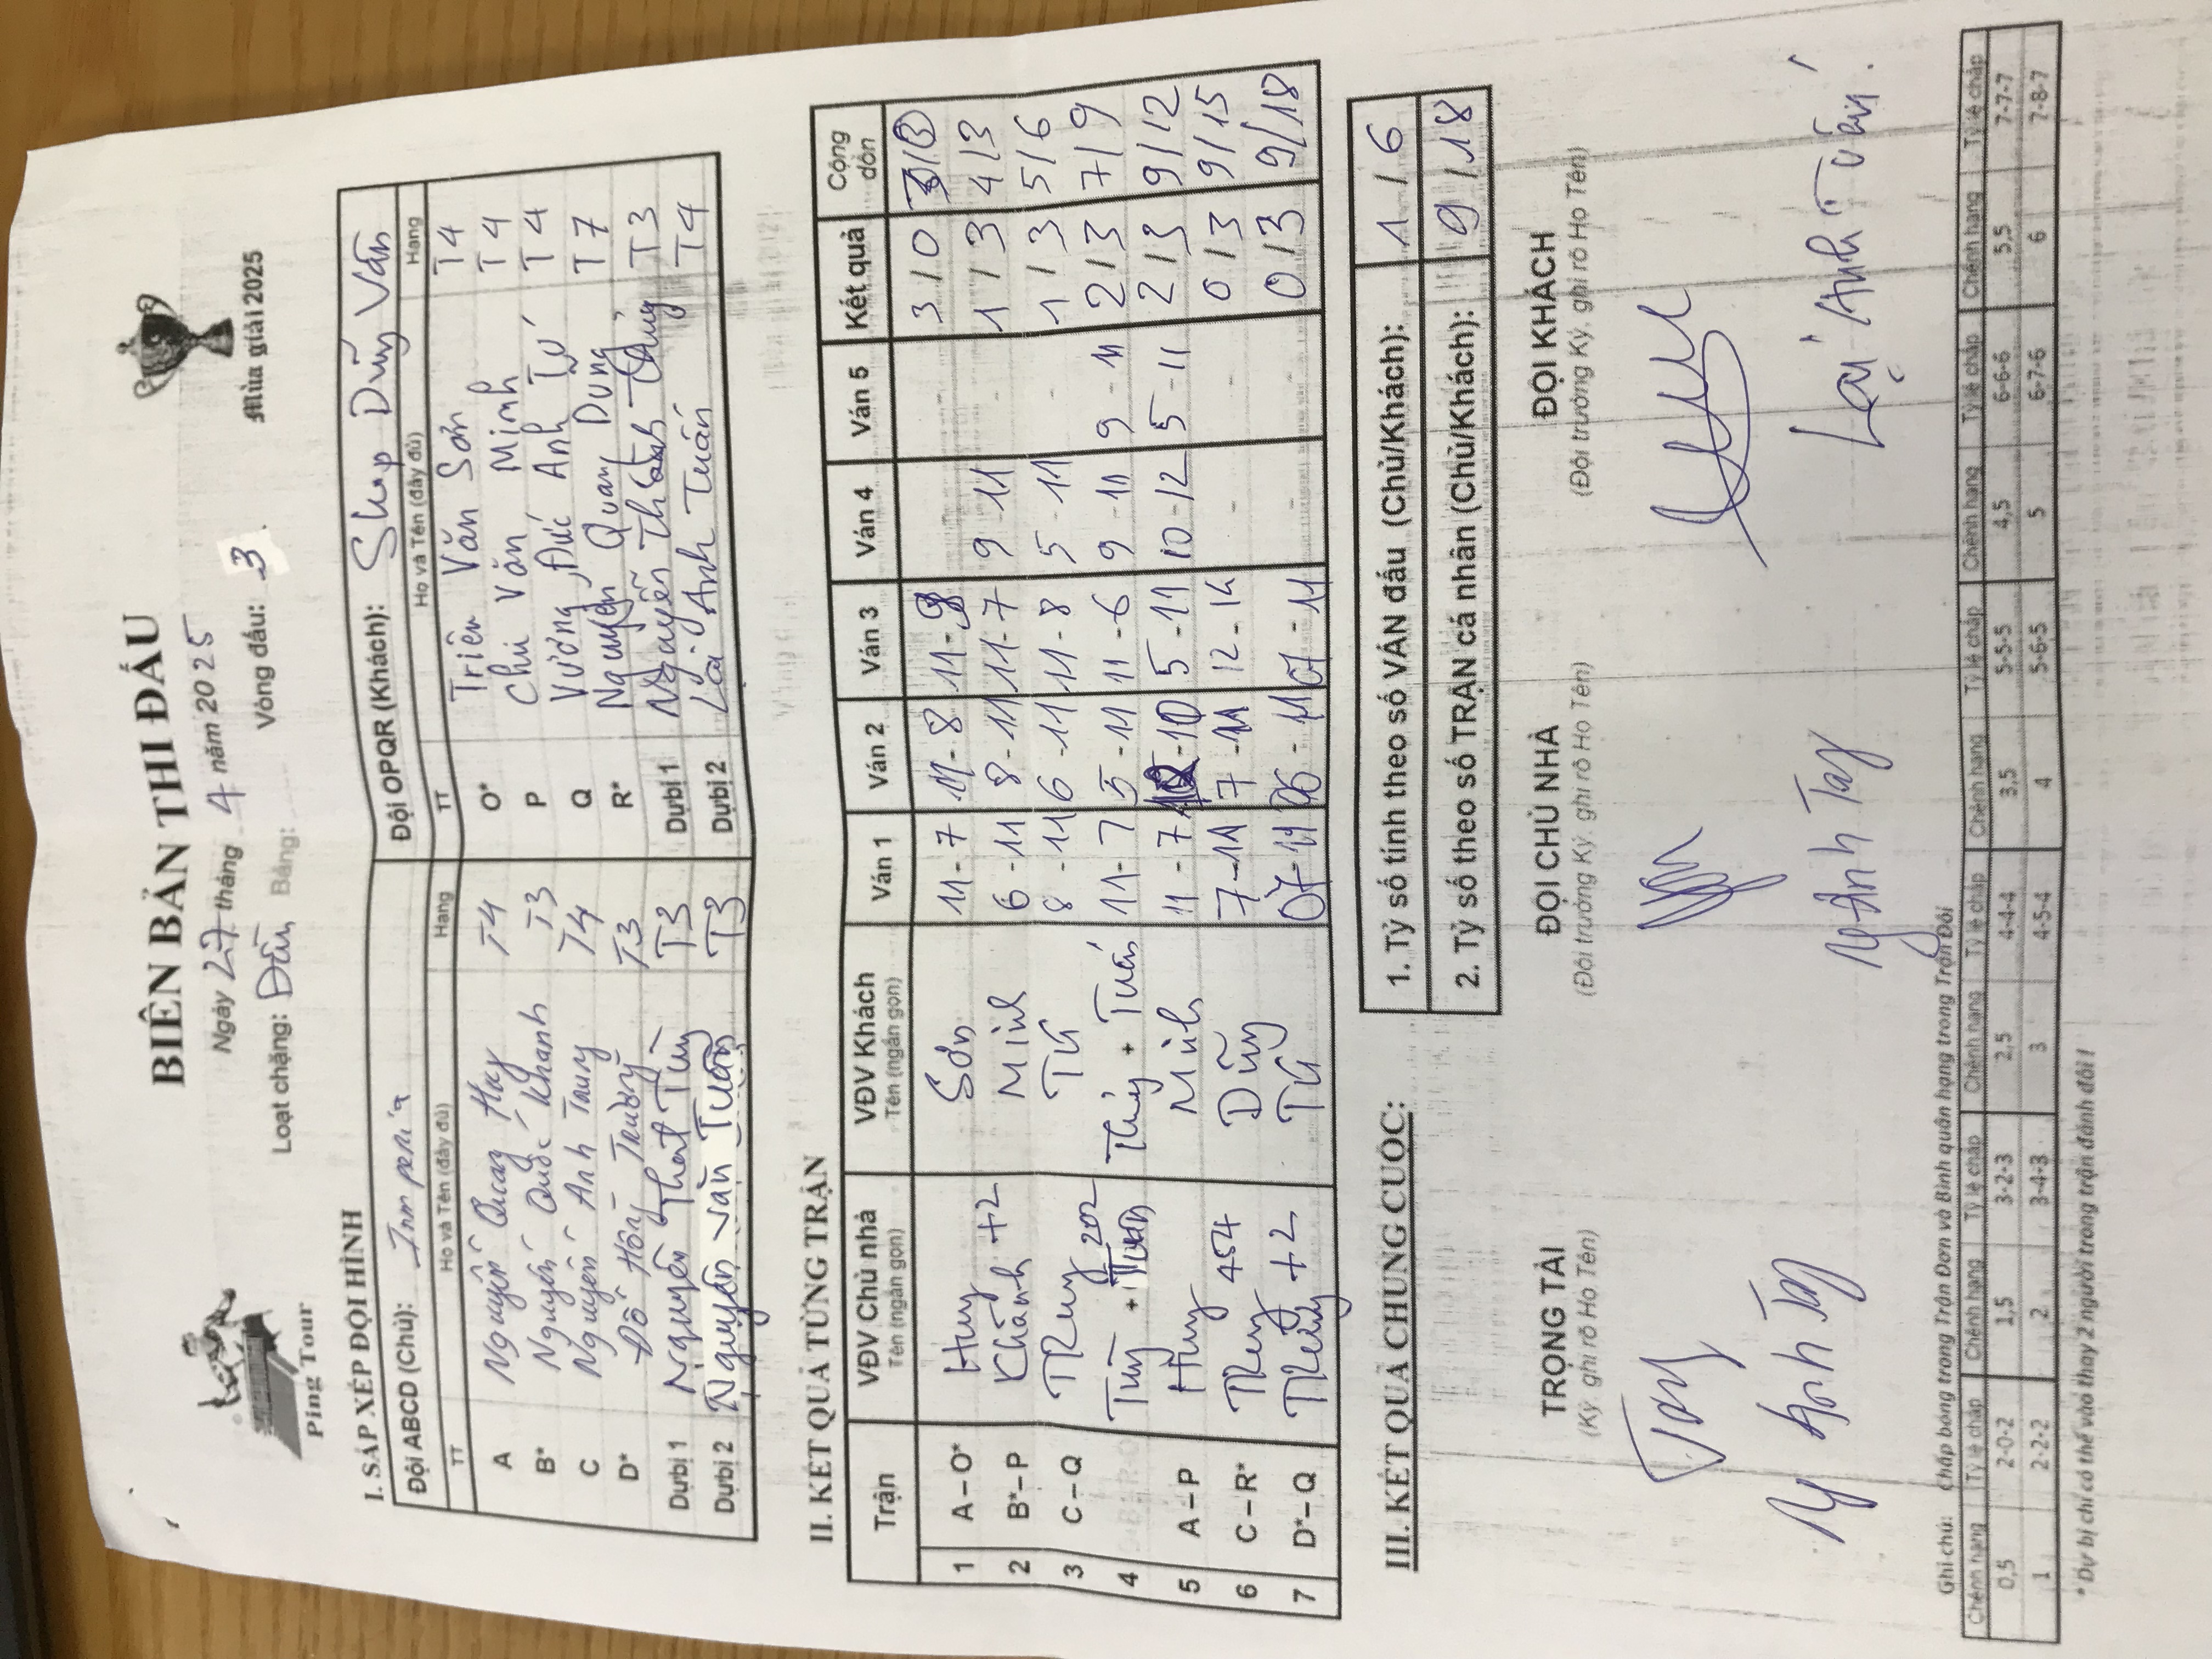 Ping Tour
BIÊN BẢN THI ĐẤU
Ngày 27 tháng 4 năm 2025
Loạt chặng: Dũn Bảng:
Vòng đấu: 3
Mùa giải 2025
I. SẮP XẾP ĐỘI HÌNH
Đội ABCD (Chủ): Đội OPQR (Khách): Shop Dũng Vân
TT Họ và Tên (đầy đủ) Hạng TT Họ và Tên (đầy đủ) Hạng
A Nguyễn Quang Huy T4 O* Triệu Văn Sơn T4
B* Nguyễn Quốc Khanh T3 P Chu Văn Minh T4
C Nguyễn Anh Trung T4 Q Vương Đức Anh Tú T4
D* Đỗ Hồng Trường T3 R* Nguyễn Quang Dũng T7
Dự bị 1 Nguyễn That Tùng T3 Dự bị 1 Nguyễn Thành T3
Dự bị 2 Nguyễn Văn Tuân T3 Dự bị 2 Lại Anh Tuấn T4
II. KẾT QUẢ TỪNG TRẬN
Trận VĐV Chủ nhà Tên (ngắn gọn) VĐV Khách Tên (ngắn gọn) Ván 1 Ván 2 Ván 3 Ván 4 Ván 5 Kết quả Cộng dồn
1 A – O* Huy Sơn 11-7 11-8 11-9 3/0 3/0
2 B* – P Khành +2 Minh 6-11 8-11 11-7 9-11 1/3 4/3
3 C – Q Tú 8-11 6-11 11-8 5-11 1/3 5/6
4 Tùng + Tuân + Tuấn 11-7 5-11 11-6 9-11 9-11 2/3 7/9
5 A – P Huy Minh 11-7 5-11 10-12 5-11 2/3 9/12
6 C – R* 454 Dũng 7-11 7-11 12-14 - - 0/3 9/15
7 D* – Q +2 Tú 07-11 06-11 07-11 - - 0/3 9/18
III. KẾT QUẢ CHUNG CUỘC:
1. Tỷ số tính theo số VÁN đấu (Chủ/Khách): 1/6
2. Tỷ số theo số TRẬN cá nhân (Chủ/Khách): 9/18
TRỌNG TÀI ĐỘI CHỦ NHÀ ĐỘI KHÁCH
(Ký, ghi rõ Họ Tên) (Đội trưởng Ký, ghi rõ Họ Tên) (Đội trưởng Ký, ghi rõ Họ Tên)
Lại Anh Tuấn
Ghi chú: Chấp bóng trong Trận Đơn và Bình quân hạng trong Trận Đôi
Chênh hạng Tỷ lệ chấp Chênh hạng Tỷ lệ chấp Chênh hạng Tỷ lệ chấp Chênh hạng Tỷ lệ chấp Chênh hạng Tỷ lệ chấp Chênh hạng Tỷ lệ chấp
0,5 2-0-2 1,5 3-2-3 2,5 4-4-4 3,5 5-5-5 4,5 6-6-6 5,5 7-7-7
1 2-2-2 2 3-4-3 3 4-5-4 4 5-6-5 5 6-7-6 6 7-8-7
* Dự bị chỉ có thể vào thay 2 người trong trận đánh đôi !